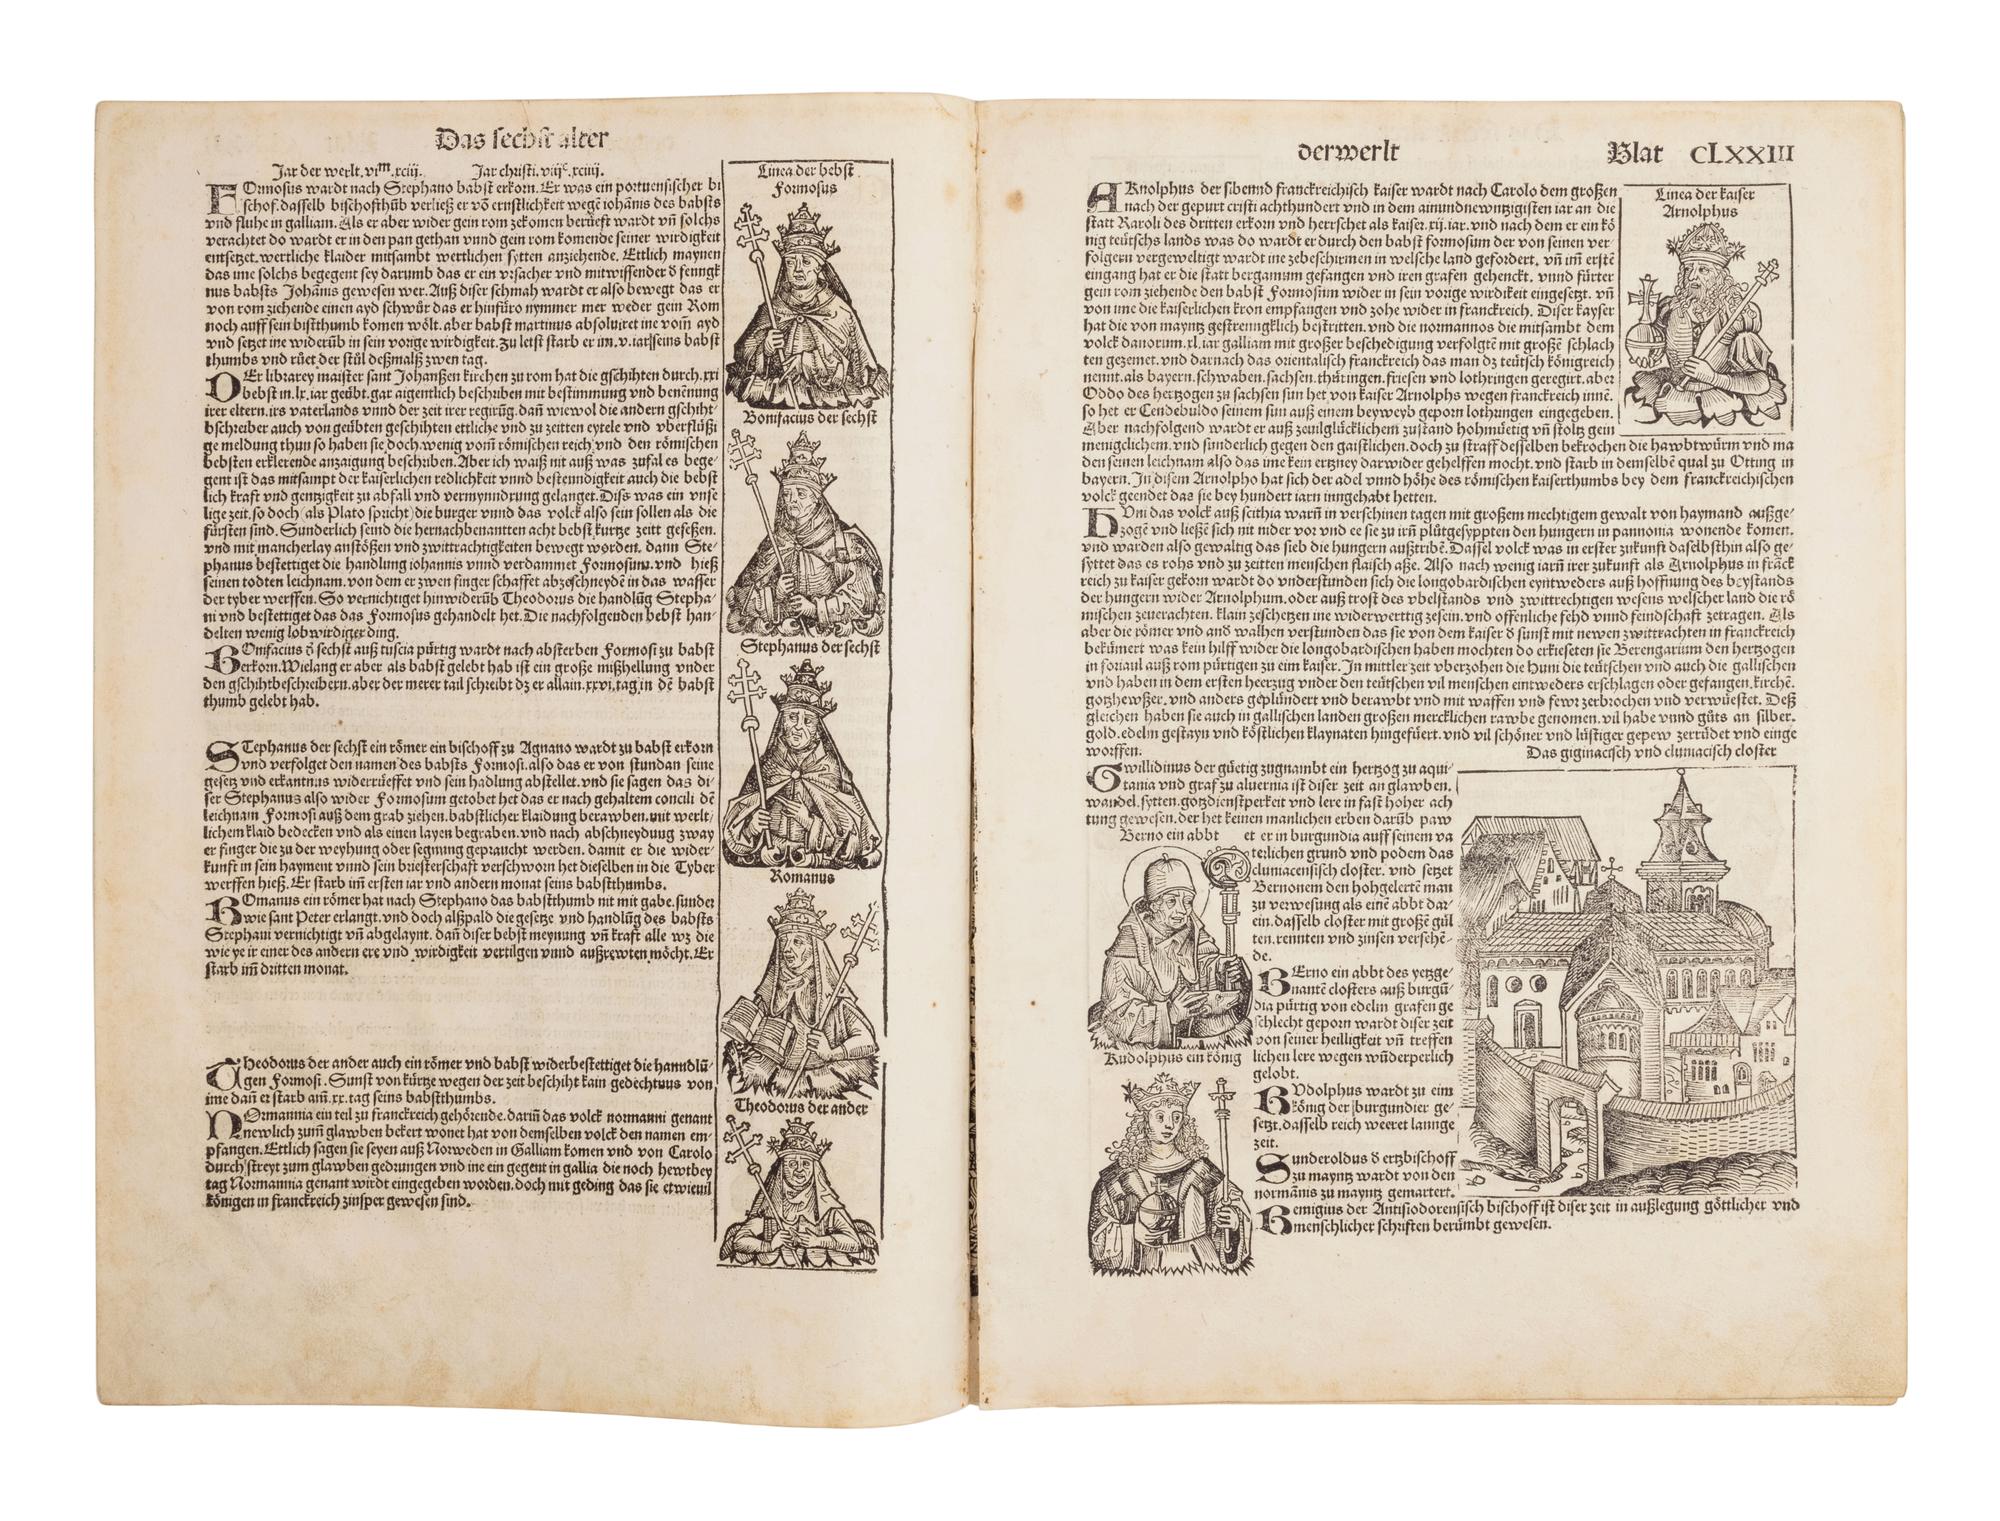 Das sechst alter
Jar der werlt. vi^m. xciij. Jar christi. viij^c. xciiij.
Linea der bebst
Formosus
FOrmosus wardt nach Stephano babst erkorn. Er was ein portuensischer bi
schof. dasselb bischofthůb verließ er võ ernstlichkeit wegẽ iohãnis des babsts
vnd fluhe in galliam. Als er aber wider gein rom zekomen berüeft wardt vñ solchs
verachtet do wardt er in den pan gethan vnnd gein rom komende seiner wirdigkeit
entsetzt. wertliche klaider mitsambt wertlichen sytten anziehende. Ettlich maynen
das ime solchs begegent sey darumb das er ein vrsacher vnd mitwissender d̕ fenngk
nus babsts Johãnis gewesen wer. Auß diser schmah wardt er also bewegt das er
von rom ziehende einen ayd schwůr das er hinfüro nymmer mer weder gein Rom
noch auff sein bistthumb komen wölt. aber babst martinus absoluiret ine vom̃ ayd
vnd setzet ine widerůb in sein vorige wirdigkeit. Zu letst starb er im .v. iar seins babst
thumbs vnd růet der stůl deßmalß zwen tag.
DEr librarey maister sant Johanßen kirchen zu rom hat die gschihten durch .xxi
bebst in .lx. iar geübt. gar aigentlich beschriben mit bestimmung vnd benẽnung
irer eltern. irs vaterlands vnnd der zeit irer regirũg. dañ wiewol die andern gschiht-
bschreiber auch von geübten geschihten ettliche vnd zu zeitten eytele vnd vberflüßi
ge meldung thun so haben sie doch wenig vom̃ römischen reich vnd den römischen
bebsten erklerende anzaigung beschriben. Aber ich waiß nit auß was zufal es bege-
gent ist das mitsampt der kaiserlichen redlichkeit vnnd bestenndigkeit auch die bebst
lich kraft vnd gentzigkeit zu abfall vnd vermynndrung gelanget. Diss was ein vnse
lige zeit. so doch (als Plato spricht) die burger vnnd das volck also sein sollen als die
fürsten sind. Sunderlich seind die hernachbenantten acht bebst kurtze zeitt geseßen.
vnd mit mancherlay anstößen vnd zwittrachtigkeiten bewegt worden. dann Ste-
phanus bestettiget die handlung iohannis vnnd verdammet Formosum. vnd hieß
seinen todten leichnam. von dem er zwen finger schaffet abzeschneydẽ in das wasser
der tyber werffen. So vernichtiget hinwiderůb Theodorus die handlũg Stepha-
ni vnd bestettiget das das Formosus gehandelt het. Die nachfolgenden bebst han-
delten wenig lobwirdiger ding.
Bonifacius der sechst
BOnifacius d̕ sechst auß tuscia pürtig wardt nach absterben Formosi zu babst
erkorn. Wielang er aber als babst gelebt hab ist ein große mißhellung vnder
den gschihtbeschreibern. aber der merer tail schreibt dz er allain .xxvi. tag in dẽ babst
thumb gelebt hab.
Stephanus der sechst
STephanus der sechst ein römer ein bischoff zu Agnano wardt zu babst erkorn
vnd verfolget den namen des babsts Formosi. also das er von stundan seine
gesetz vnd erkantnus widerrüeffet vnd sein hãdlung abstellet. vnd sie sagen das di-
ser Stephanus also wider Formosum getobet het das er nach gehaltem concili dẽ
leichnam Formosi auß dem grab ziehen. babstlicher klaidung berawben. mit werlt-
lichem klaid bedecken vnd als einen layen begraben. vnd nach abschneydung zway
er finger die zu der weyhung oder segnung gepraucht werden. damit er die wider-
kunft in sein hayment vnnd sein briesterschaft verschworn het dieselben in die Tyber
werffen hieß. Er starb im̃ ersten iar vnd andern monat seins babstthumbs.
Romanus
ROmanus ein römer hat nach Stephano das babstthumb nit mit gabe. sunder
wie sant Peter erlangt. vnd doch alßpald die gesetze vnd handlũg des babsts
Stephani vernichtigt vñ abgelaynt. dañ diser bebst meynung vñ kraft alle wz die
wie ye ir einer des andern ere vnd wirdigkeit vertilgen vnnd außrewten möcht. Er
starb im̃ dritten monat.
Theodorus der ander
THeodorus der ander auch ein römer vnd babst widerbestettiget die hanndlũ-
gen Formosi. Sunst von kürtze wegen der zeit beschiht kain gedechtnus von
ime dañ er starb am̃ .xx. tag seins babstthumbs.
NOrmannia ein teil zu franckreich gehörende. dariñ das volck normanni genant
newlich zum̃ glawben bekert wonet hat von demselben volck den namen em-
pfangen. Ettlich sagen sie seyen auß Norweden in Galliam komen vnd von Carolo
durch streyt zum glawben gedrungen vnd ine ein gegent in gallia die noch hewtbey
tag Normannia genant wirdt eingegeben worden. doch mit geding das sie etwieuil
königen in franckreich zinsper gewesen sind.
der werlt
Blat CLXXIII
Linea der kaiser
Arnolphus
ARnolphus der sibennd franckreichisch kaiser wardt nach Carolo dem großen
nach der gepurt cristi achthundert vnd in dem ainundnewntzigisten iar an die
statt Karoli des dritten erkorn vnd herrschet als kaiser .xij. iar. vnd nach dem er ein kö
nig teütschs lands was do wardt er durch den babst formosum der von seinen ver-
folgern vergeweltigt wardt ine zebeschirmen in welsche land gefordert. vñ im̃ erstẽ
eingang hat er die statt bergamum gefangen vnd iren grafen gehenckt. vnnd fürter
gein rom ziehende den babst Formosum wider in sein vorige wirdikeit eingesetzt. vñ
von ime die kaiserlichen kron empfangen vnd zohe wider in franckreich. Diser kayser
hat die von mayntz gestrenngklich bestritten. vnd die normannos die mitsambt dem
volck danorum .xl. iar galliam mit großer beschedigung verfolgtẽ mit großẽ schlach
ten gezemet. vnd darnach das orientalisch franckreich das man dz teütsch königreich
nennt. als bayern. schwaben. sachsen. thüringen. friesen vnd lothringen geregirt. aber
Oddo des hertzogen zu sachsen sun het von kaiser Arnolphs wegen franckreich innẽ.
so het er Cendebuldo seinem sun auß einem beyweyb geporn lothringen eingegeben.
Aber nachfolgend wardt er auß zeuilglücklichem zustand hohmüetig vñ stoltz gein
menigclichem. vnd sunderlich gegen den gaistlichen. doch zu straff desselben bekrochen die hawbtwürm vnd ma
den seinen leichnam also das ime kein ertzney darwider gehelffen mocht. vnd starb in demselbẽ qual zu Otting in
bayern. In disem Arnolpho hat sich der adel vnnd höhe des römischen kaiserthumbs bey dem franckreichischen
volck geendet das sie bey hundert iarn inngehabt hetten.
HVni das volck auß scithia warñ in verschinen tagen mit großem mechtigem gewalt von haymand außge-
zogẽ vnd ließẽ sich nit nider vor vnd ee sie zu irñ plůtgesyppten den hungern in pannonia wonende komen.
vnd warden also gewaltig das sieb die hungern außtribẽ. Dassel volck was in erster zukunft daselbsthin also ge-
syttet das es rohs vnd zu zeitten menschen flaisch aße. Also nach wenig iarñ irer zukunft als Arnolphus in frãck
reich zu kaiser gekorn wardt do vnderstunden sich die longobardischen eyntweders auß hoffnung des beystands
der hungern wider Arnolphum. oder auß trost des vbelstands vnd zwittrechtigen wesens welscher land die rö
mischen zeuerachten. klain zeschetzen ine widerwerttig zesein. vnd offenliche fehd vnnd feindschaft zetragen. Als
aber die römer vnd and̕ walhen verstunden das sie von dem kaiser d̕ sunst mit newen zwittrachten in franckreich
bekümert was kein hilff wider die longobardischen haben mochten do erkieseten sie Berengarium den hertzogen
in foriaul auß rom pürtigen zu eim kaiser. In mittler zeit vberzohen die Huni die teütschen vnd auch die gallischen
vnd haben in dem ersten heerzug vnder den teütschen vil menschen eintweders erschlagen oder gefangen. kirchẽ.
gotzhewßer. vnd anders geplündert vnd berawbt vnd mit waffen vnd fewr zerbrochen vnd verwüestet. Deß
gleichen haben sie auch in gallischen landen großen mercklichen rawbe genomen. vil habe vnnd gůts an silber.
gold. edelm gestayn vnd köstlichen klaynaten hingefüert. vnd vil schöner vnd lüstiger gepew zerrüdet vnd einge
worffen.
Das giginacisch vnd cluniacisch closter
Gwillidinus der güetig zugnambt ein hertzog zu aqui-
tania vnd graf zu aluernia ist diser zeit an glawben.
wandel. sytten. gotzdienstperkeit vnd lere in fast hoher ach
tung gewesen. der het keinen manlichen erben darůb paw
Berno ein abbt
et er in burgundia auff seinem va
terlichen grund vnd podem das
cluniacensisch closter. vnd setzet
Bernonem den hohgelertẽ man
zu verwesung als einẽ abbt dar-
ein. dasselb closter mit großẽ gül
ten. rennten vnd zinsen versehẽ-
de.
BErno ein abbt des yetzge-
nantẽ closters auß burgũ-
dia pürtig von edelm grafen ge
schlecht geporn wardt diser zeit
von seiner heilligkeit vñ treffen
lichen lere wegen wũderperlich
gelobt.
Rudolphus ein könig
RVdolphus wardt zu eim
könig der burgundier ge-
setzt. dasselb reich weeret lannge
zeit.
Sunderoldus d̕ ertzbischoff
zu mayntz wardt von den
normãnis zu mayntz gemartert.
Remigius der Antisiodorensisch bischoff ist diser zeit in außlegung göttlicher vnd
menschlicher schriften berümbt gewesen.